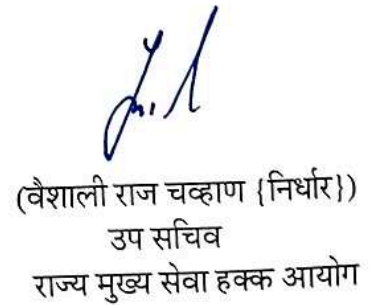 (वैशाली राज चव्हाण {निर्धार})
उप सचिव
राज्य मुख्य सेवा हक्क आयोग